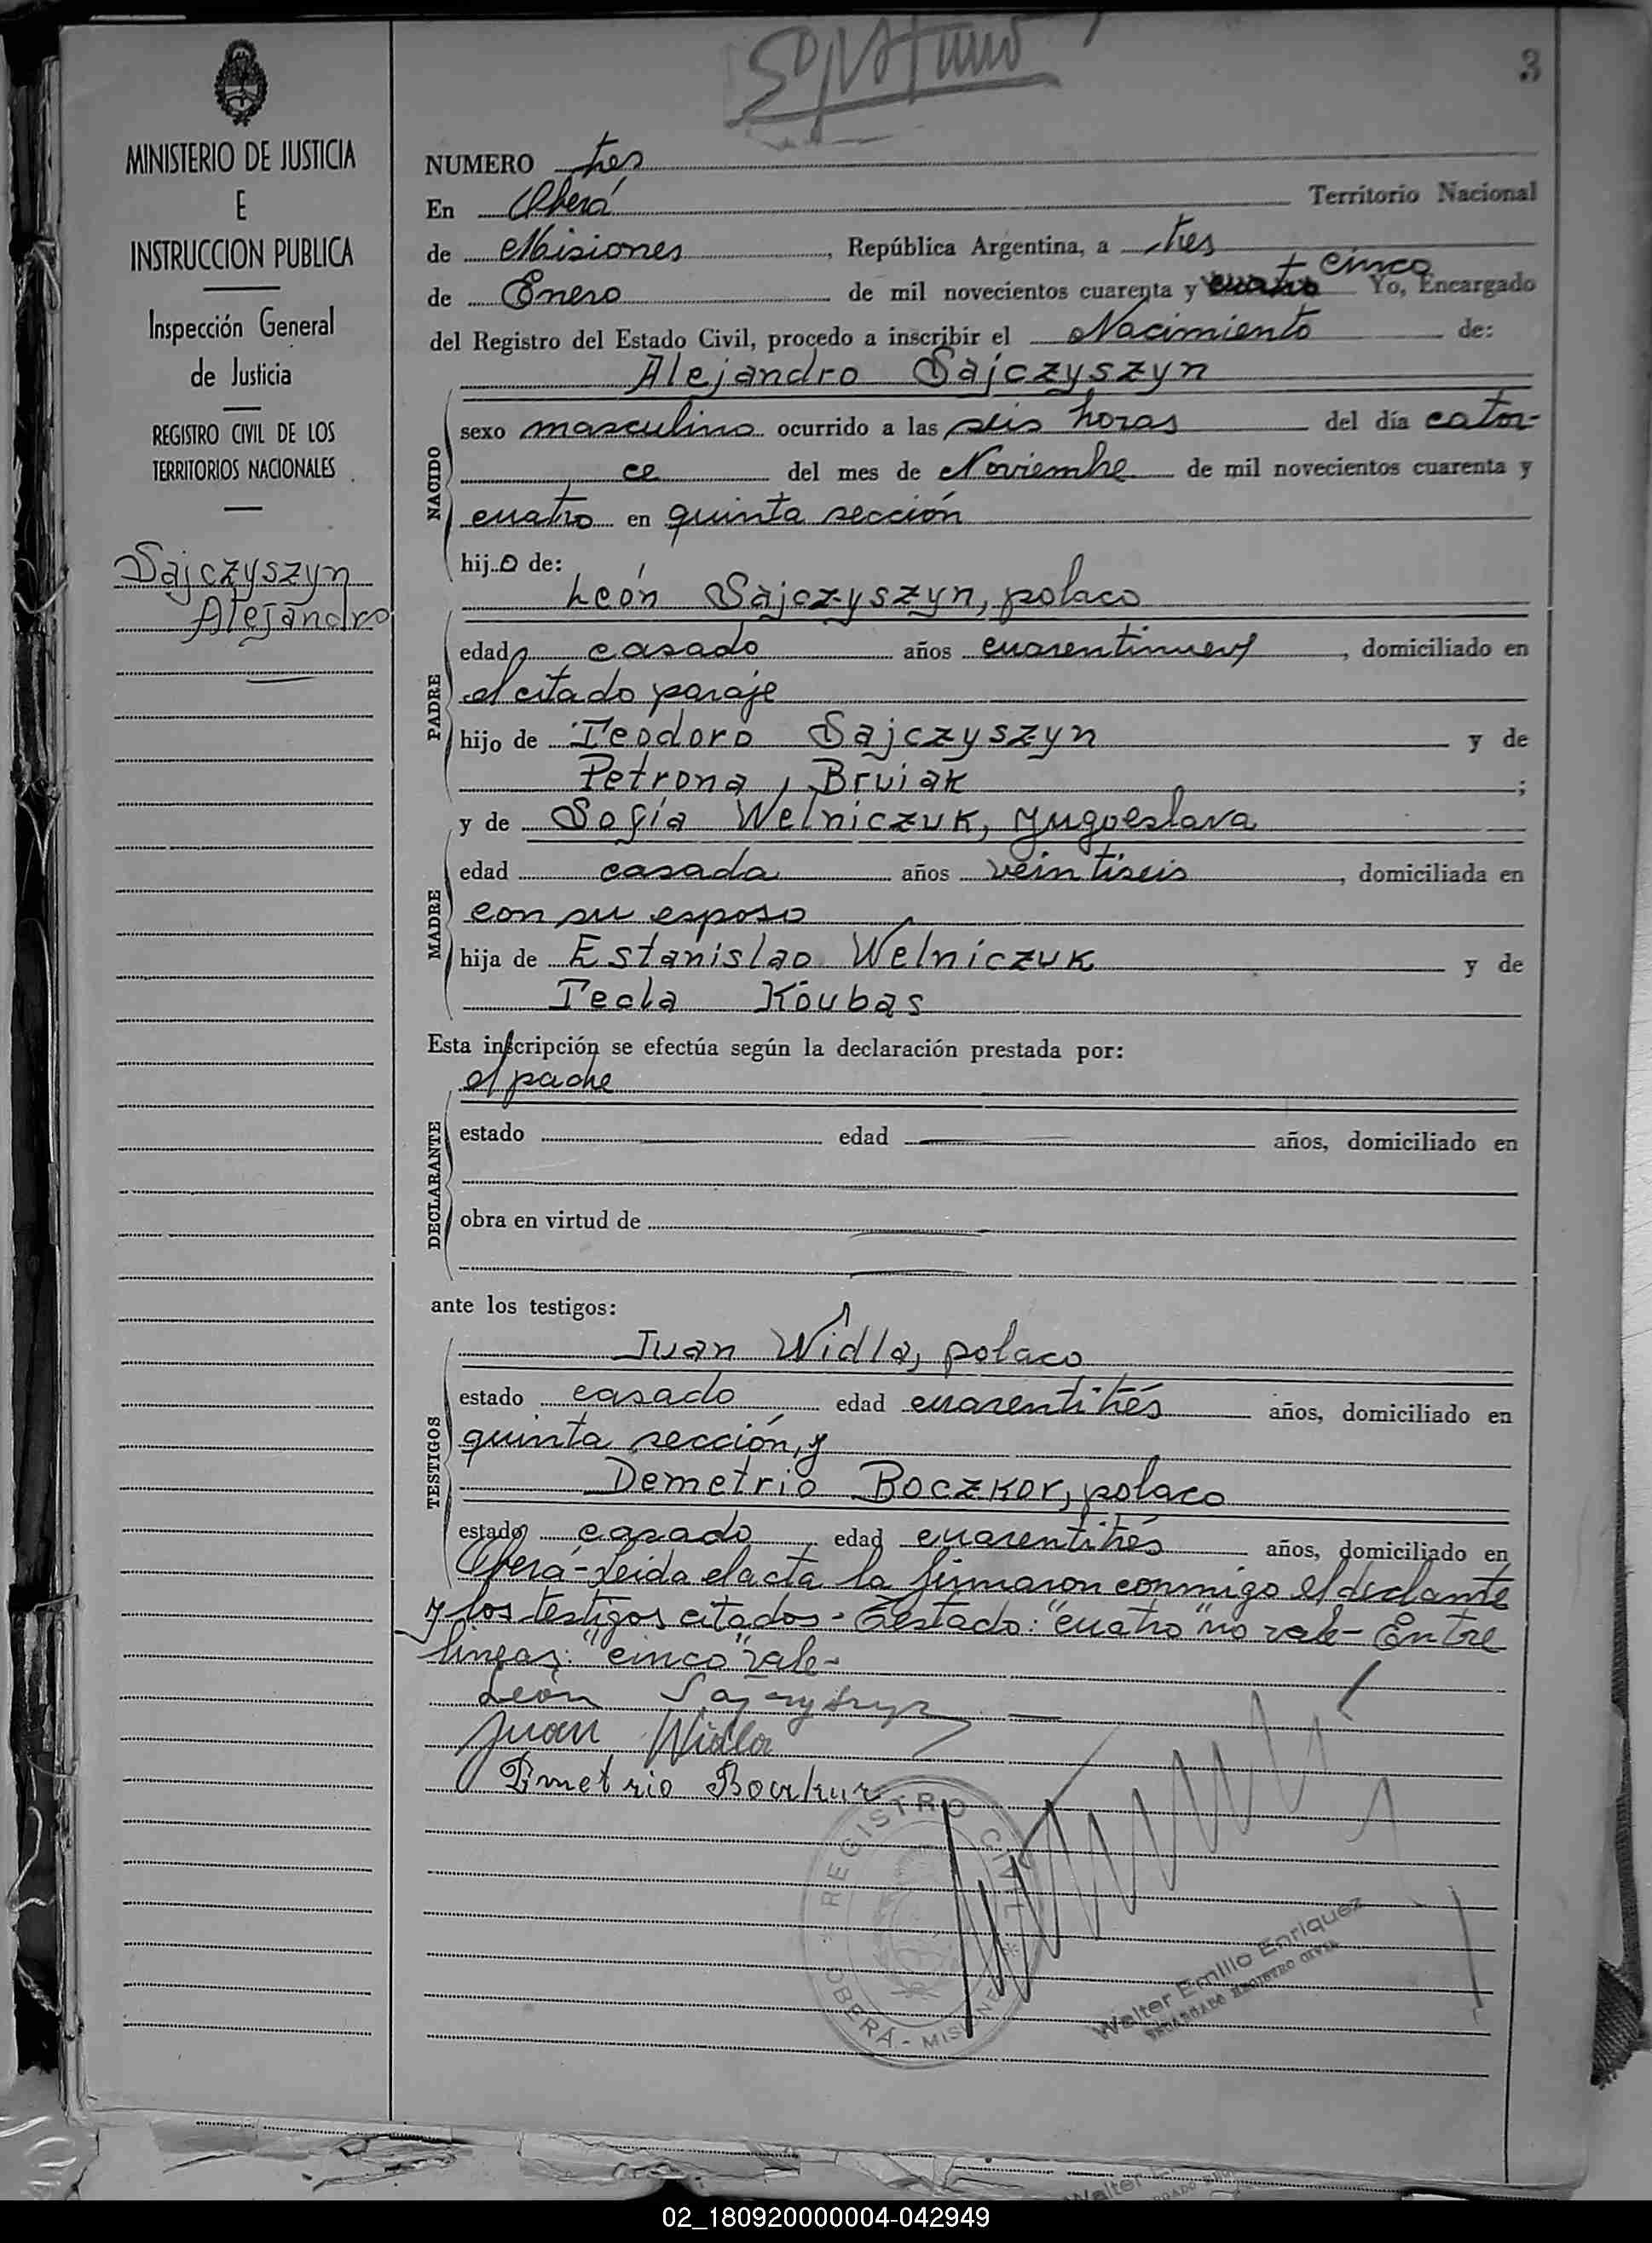 3
MINISTERIO DE JUSTICIA
E
INSTRUCCION PUBLICA
Inspección General
de Justicia
REGISTRO CIVIL DE LOS
TERRITORIOS NACIONALES
Sajczyszyn
Alejandro
NUMERO tres
En Oberá Territorio Nacional
de Misiones, República Argentina, a tres
cinco
de Enero de mil novecientos cuarenta y cuatro Yo, Encargado
del Registro del Estado Civil, procedo a inscribir el Nacimiento de:
Alejandro Sajczyszyn
NACIDO
sexo masculino ocurrido a las seis horas del día cator-
ce del mes de Noviembre de mil novecientos cuarenta y
cuatro en quinta sección
hijo de:
León Sajczyszyn, polaco
PADRE
edad casado años cuarentinueve, domiciliado en
el citado paraje
hijo de Teodoro Sajczyszyn y de
Petrona Bruiak;
y de Sofía Welniczuk, yugoeslava
MADRE
edad casada años veintiseis, domiciliada en
con su esposo
hija de Estanislao Welniczuk y de
Tecla Koubas
Esta inscripción se efectúa según la declaración prestada por:
el padre
DECLARANTE
estado edad años, domiciliado en
obra en virtud de
ante los testigos:
TESTIGOS
Juan Widla, polaco
estado casado edad cuarentitrés años, domiciliado en
quinta sección, y
Demetrio Boczkor, polaco
estado casado edad cuarentitrés años, domiciliado en
Oberá - Leida el acta la firmaron conmigo el declante
y los testigos citados - Testado: "cuatro" no vale - Entre
líneas: "cinco" vale -
León
Juan Widla
REGISTRO CIVIL
OBERÁ - MISIONES
Walter Emilio Enriquez
ENCARGADO REGISTRO CIVIL
Walter
02_180920000004-042949